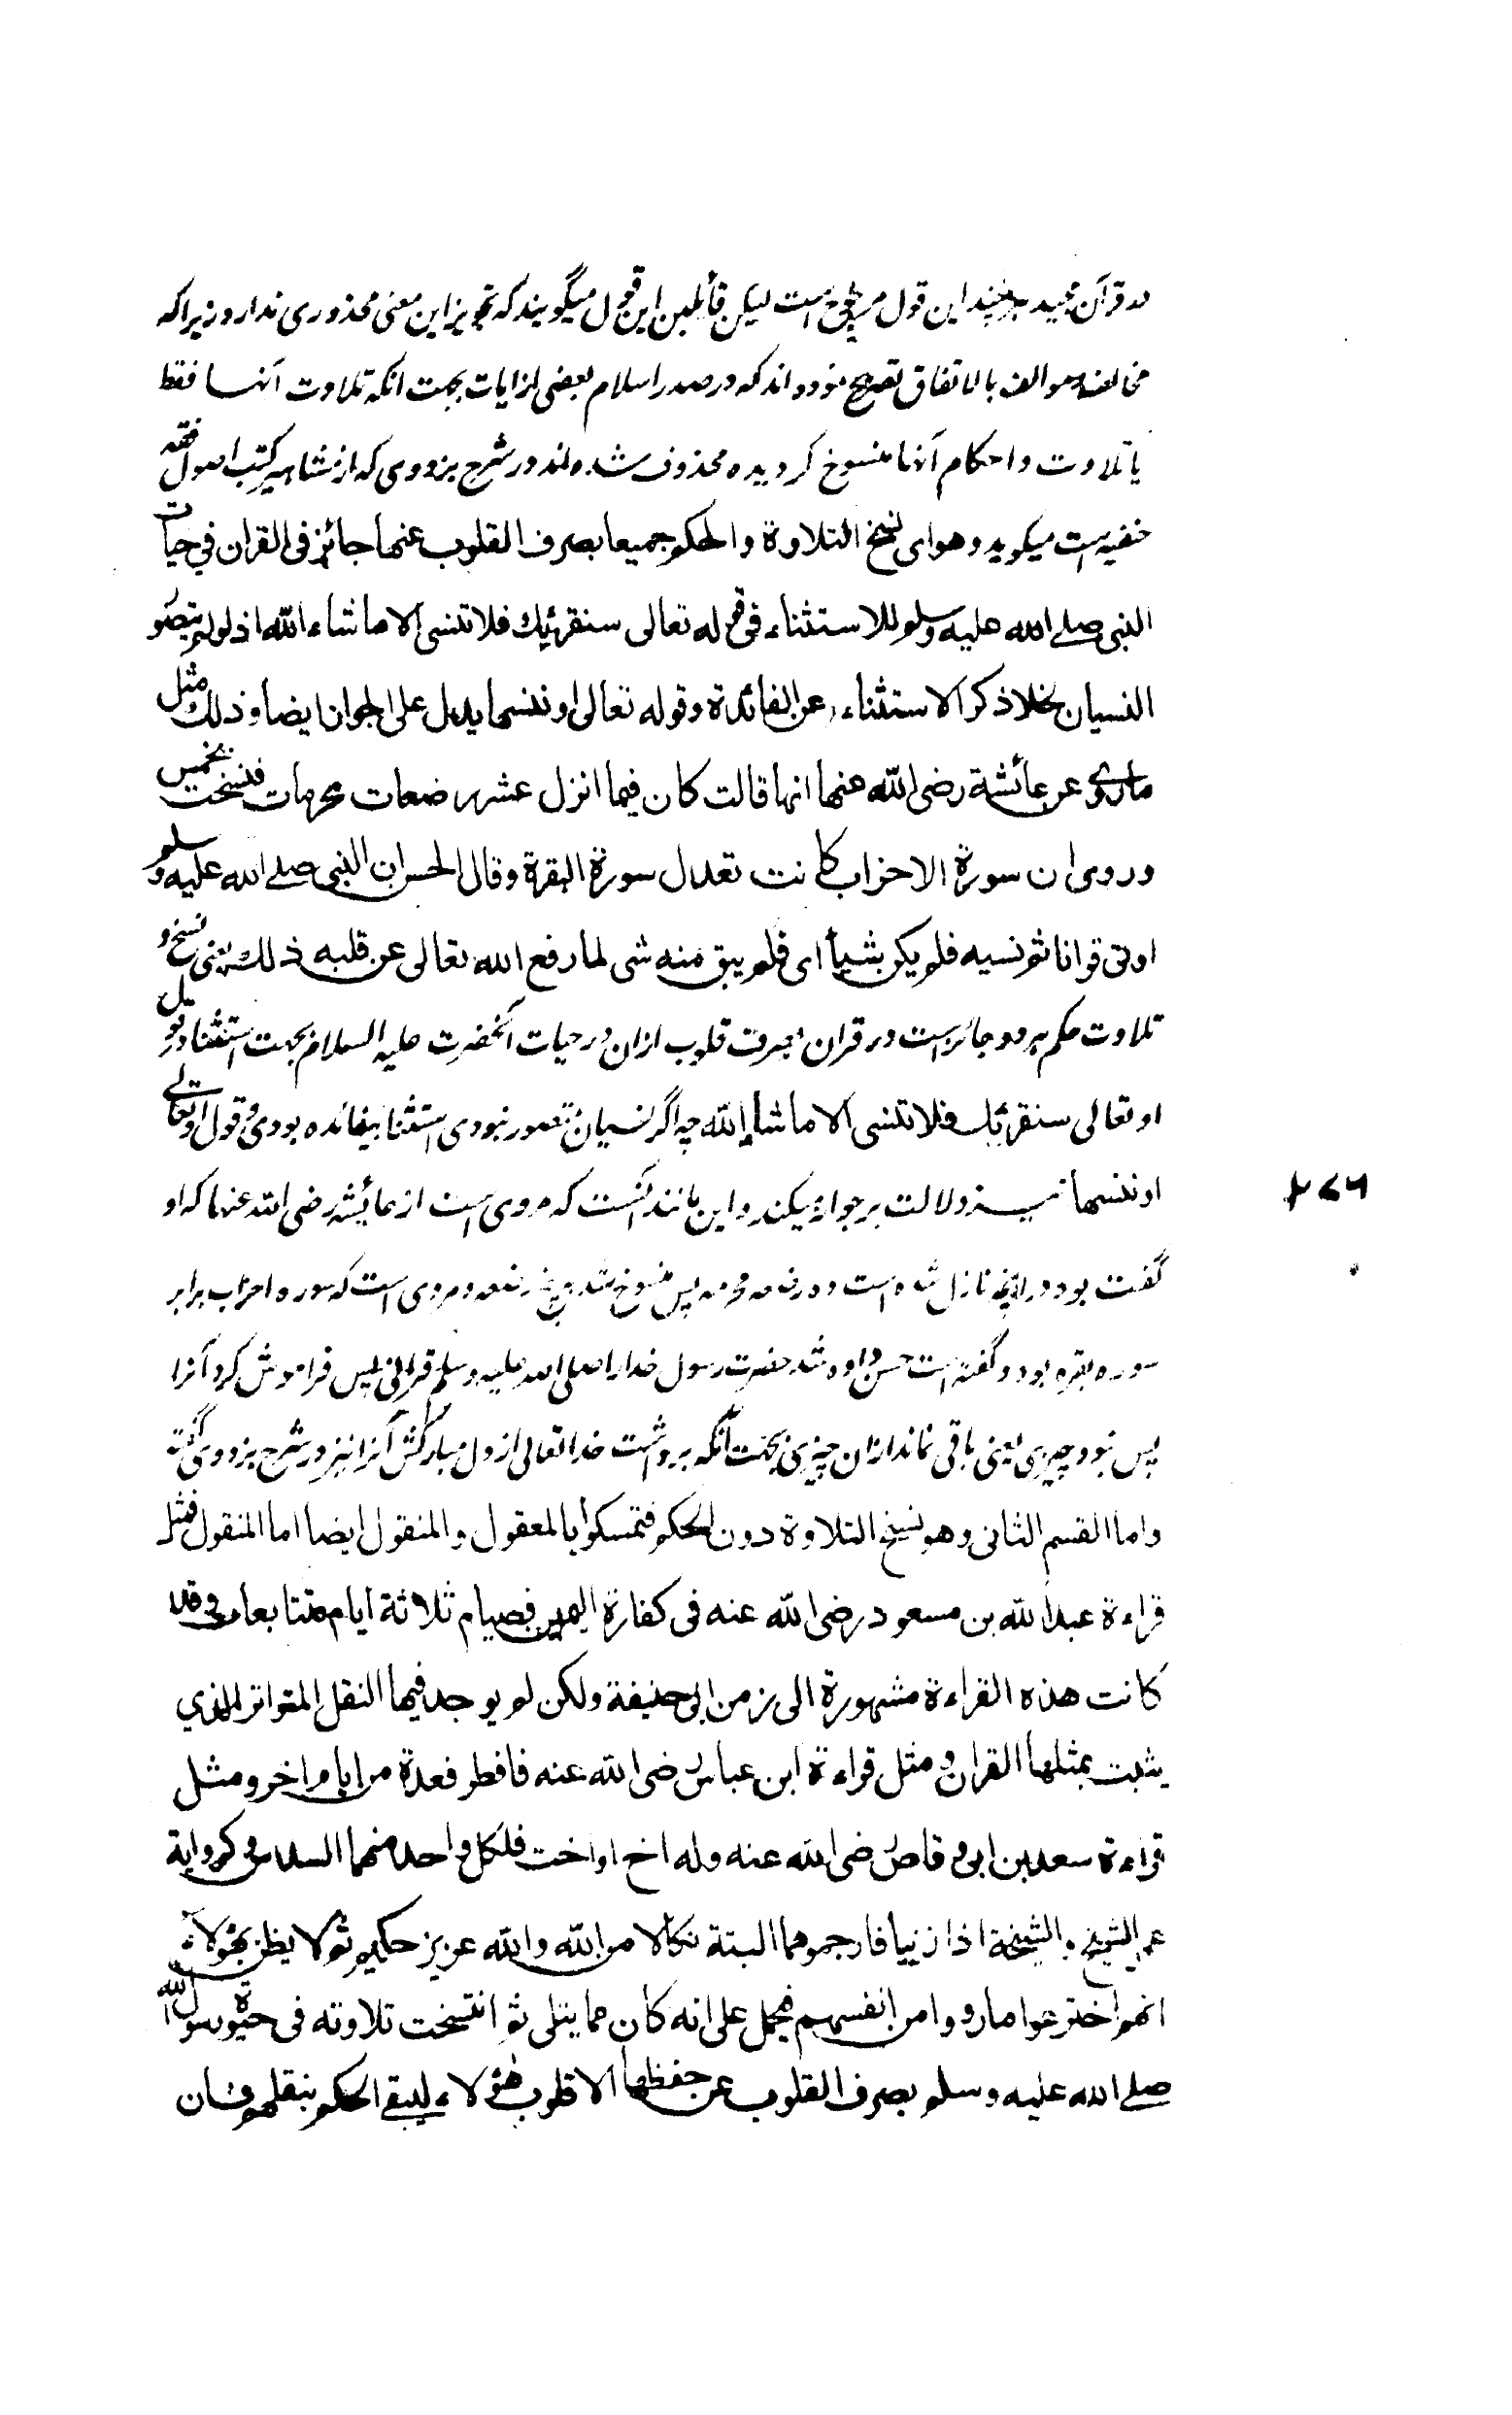 در قرآن مجید هرچند این قول مرجوح است لیکن قائلین این قول میگویند که تجویز این معنی محذوری ندارد زیرا که
مخالف و موالف بالاتفاق تصریح نموده اند که در صدر اسلام بعضی از ایات بجهت انکه تلاوت آنها فقط
یا تلاوت و احکام آنها منسوخ گردیده محذوف شده اند در شرح بزدوی که از مشاهیر کتب اصول فقه
حنفیه است میگوید وهو ای نسخ التلاوة والحکم جمیعا بصرف القلوب عنها جائز فی القران فی حیات
النبی صلی الله علیه وسلم للاستثناء فی قوله تعالی سنقرئك فلا تنسی الا ما شاء الله اذ لو لم یتصور
النسیان لخلا ذکر الاستثناء عن الفائدة وقوله تعالی او ننسها یدل علی الجواز ایضا وذلك مثل
ما روی عن عائشة رضی الله عنها انها قالت کان فیما انزل عشر رضعات محرمات فنسخت بخمس
وروی ان سورة الاحزاب کانت تعدل سورة البقرة وقال الحسن ان النبی صلی الله علیه وسلم
اوتی قرانا ثم نسیه فلم یکن شیأ ای فلم یبق منه شی لما رفع الله تعالی عن قلبه ذلك یعنی نسخ
تلاوت و حکم هر دو جائز است در قران بصرف قلوب ازان در حیات آنحضرت علیه السلام بجهت استثنا در قول
او تعالی سنقرئك فلا تنسی الا ما شاء الله چه اگر نسیان متصور نبودی استثنا بیفائده بودی و قول او تعالی
او ننسها نیز دلالت بر جواز میکند و این مانند آنست که مروی است از عائشه رضی الله عنها که او
گفت بود در آنچه نازل شده است ده رضعه محرمه پس منسوخ شد به پنج رضعه و مروی است که سوره احزاب برابر
سوره بقره بود و گفته است حسن داده شد حضرت رسول خدا را صلی الله علیه وسلم قرآنی پس فراموش کرد آنرا
پس نبود چیزی یعنی باقی نماند ازان چیزی بجهت آنکه برداشت خدا تعالی از دل مبارکش آنرا نیز در شرح بزدوی گفته
واما القسم الثانی وهو نسخ التلاوة دون الحکم فتمسکوا بالمعقول والمنقول ایضا اما المنقول فمثل
قراءة عبد الله بن مسعود رضی الله عنه فی کفارة الیمین فصیام ثلاثة ایام متتابعات وقد
کانت هذه القراءة مشهورة الی زمن ابی حنیفة ولکن لم یوجد فیها النقل المتواتر الذی
یثبت بمثلها القران ومثل قراءة ابن عباس رضی الله عنه فافطر فعدة من ایام اخر ومثل
قراءة سعد بن ابی وقاص رضی الله عنه وله اخ او اخت فلکل واحد منهما السدس وکروایة
عمر الشیخ والشیخة اذا زنیا فارجموهما البتة نکالا من الله والله عزیز حکیم ثم لا یظن بهؤلاء
انهم اخترعوا ما رووا من انفسهم فیحمل علی انه کان مما یتلی ثم انتسخت تلاوته فی حیوة رسول الله
صلی الله علیه وسلم بصرف القلوب عن حفظها الا قلوب هؤلاء لیبقی الحکم بنقلهم فان